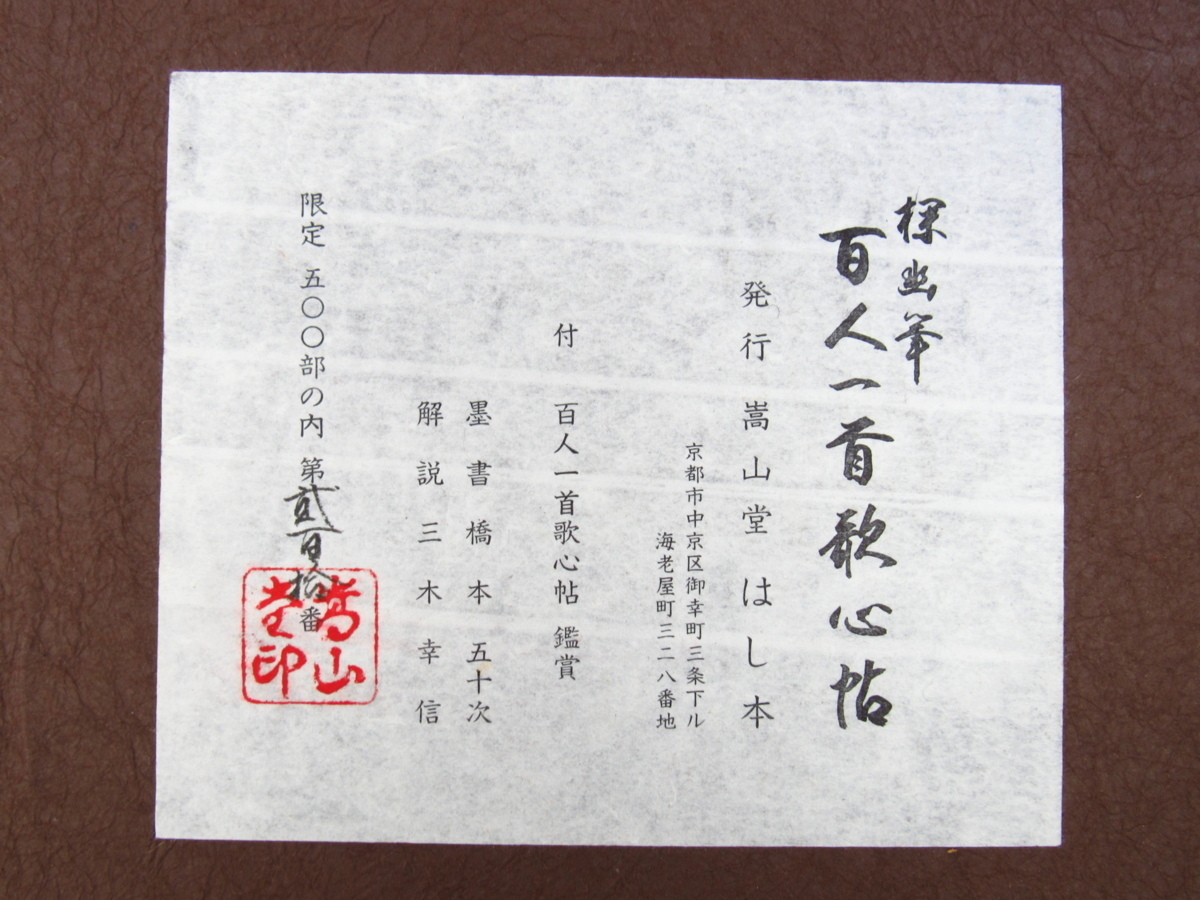 探幽筆
百人一首歌心帖
発行 嵩山堂 はし本
京都市中京区御幸町三条下ル
海老屋町三二八番地
付 百人一首歌心帖 鑑賞
墨書 橋本 五十次
解説 三木 幸信
限定 五〇〇部の内 第貳百拾番
嵩山堂印